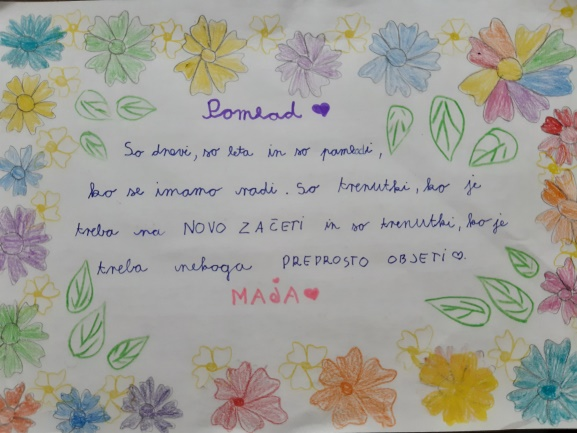 Pomlad
So dnevi, so leta in so pomladi,
ko se imamo radi. So trenutki, ko je
treba na NOVO ZAČETI in so trenutki, ko je
treba nekoga PREPROSTO OBJETI ♡.
MAJA ♥